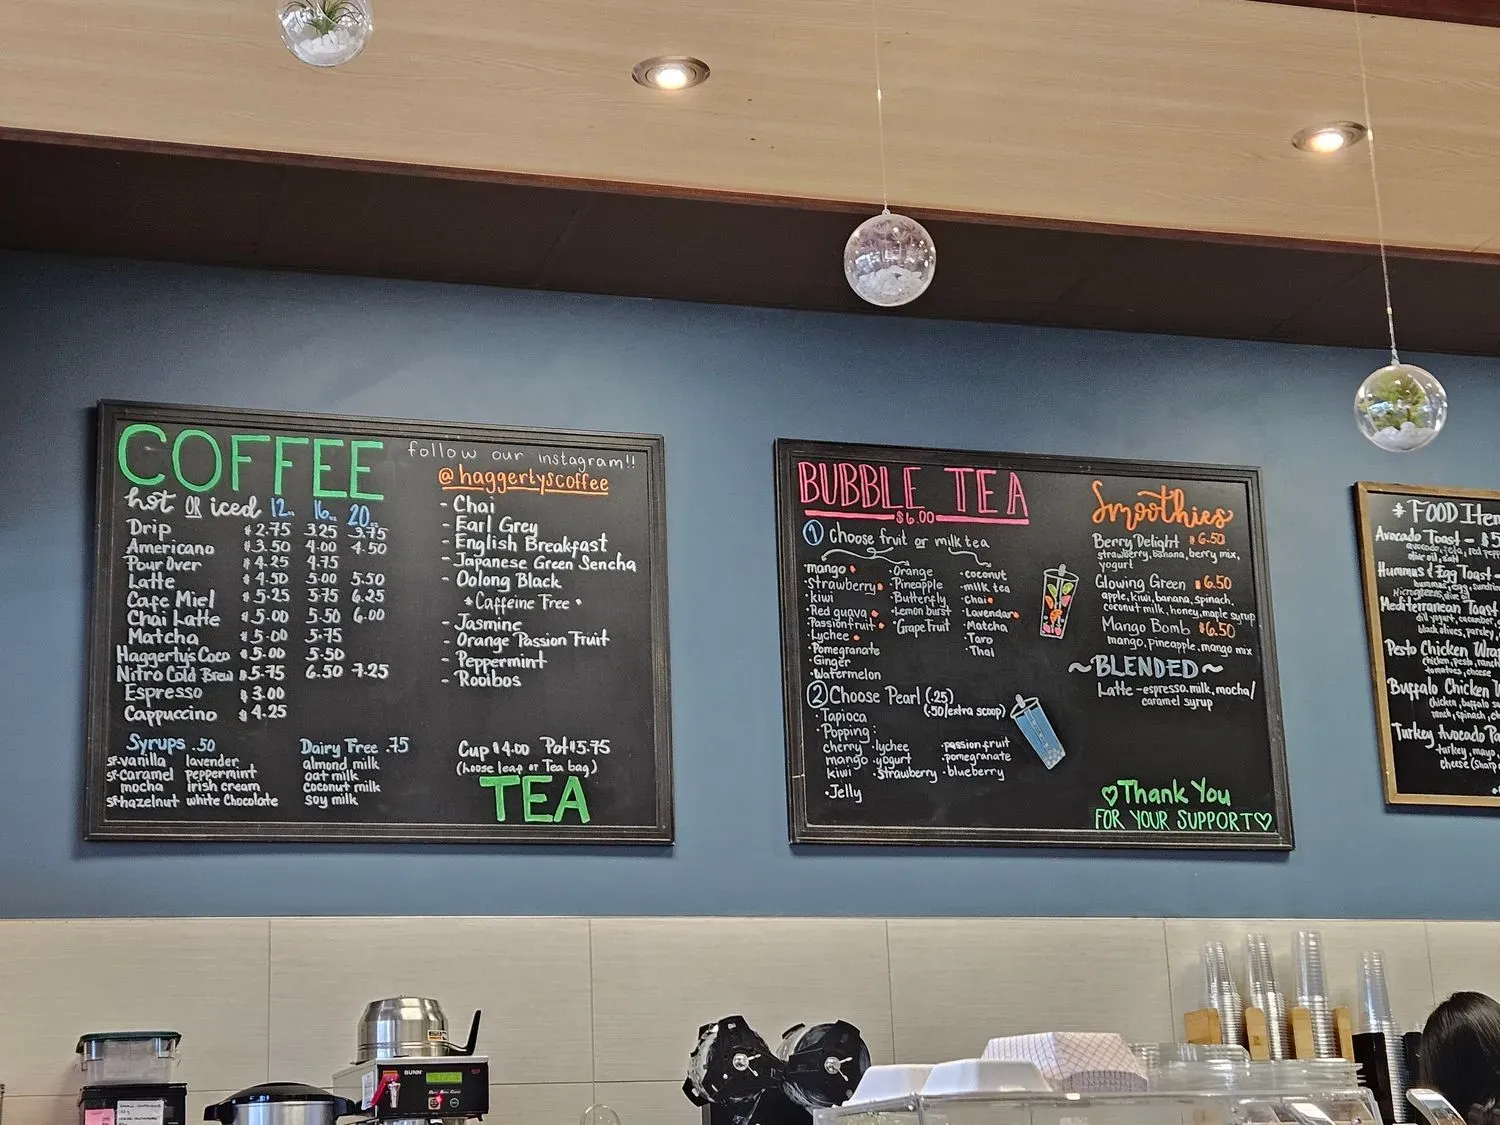 COFFEE
hot OR iced 12oz 16oz 20oz
Drip $2.75 3.25 3.75
Americano $3.50 4.00 4.50
Pour Over $4.25 4.75
Latte $4.50 5.00 5.50
Cafe Miel $5.25 5.75 6.25
Chai Latte $5.00 5.50 6.00
Matcha $5.00 5.75
Haggerty's Coco $5.00 5.50
Nitro Cold Brew $5.75 6.50 7.25
Espresso $3.00
Cappuccino $4.25
Syrups .50
sf-vanilla lavender
sf-caramel peppermint
mocha irish cream
sf-hazelnut white Chocolate
Dairy Free .75
almond milk
oat milk
coconut milk
soy milk
follow our instagram!!
@haggertyscoffee
- Chai
- Earl Grey
- English Breakfast
- Japanese Green Sencha
- Oolong Black
*Caffeine Free*
- Jasmine
- Orange Passion Fruit
- Peppermint
- Rooibos
Cup $4.00 Pot $5.75
(loose leaf or Tea bag)
TEA
BUBBLE TEA
$6.00
1 Choose fruit or milk tea
·mango
·Strawberry
·kiwi
·Red guava
·Passionfruit
·Lychee
·Pomegranate
·Ginger
·Watermelon
·Orange
·Pineapple
·Butterfly
·Lemon burst
·Grape Fruit
·coconut
·milk tea
·Chai
·Lavendar
·Matcha
·Taro
·Thai
2 Choose Pearl (.25)
(.50/extra scoop)
·Tapioca
·Popping:
cherry ·lychee ·passion fruit
mango ·yogurt ·pomegranate
kiwi ·strawberry ·blueberry
·Jelly
Smoothies
Berry Delight $6.50
strawberry, banana, berry mix,
yogurt
Glowing Green $6.50
apple, kiwi, banana, spinach,
coconut milk, honey, maple syrup
Mango Bomb $6.50
mango, pineapple, mango mix
~BLENDED~
Latte -espresso, milk, mocha/
caramel syrup
♡Thank You
FOR YOUR SUPPORT♡
* FOOD Item
Avocado Toast - $5
avocado, feta, red pepp
olive oil, salt
Hummus & Egg Toast -
hummus, egg, sundri
microgreens, olive oil
Mediterranean Toast
dill yogurt, cucumber,
black olives, parsley,
Pesto Chicken Wra
chicken, pesto, ranch
tomatoes, cheese
Buffalo Chicken
chicken, buffalo s
ranch, spinach, ch
Turkey Avocado Pa
turkey, mayo,
cheese (sharp c
BUNN